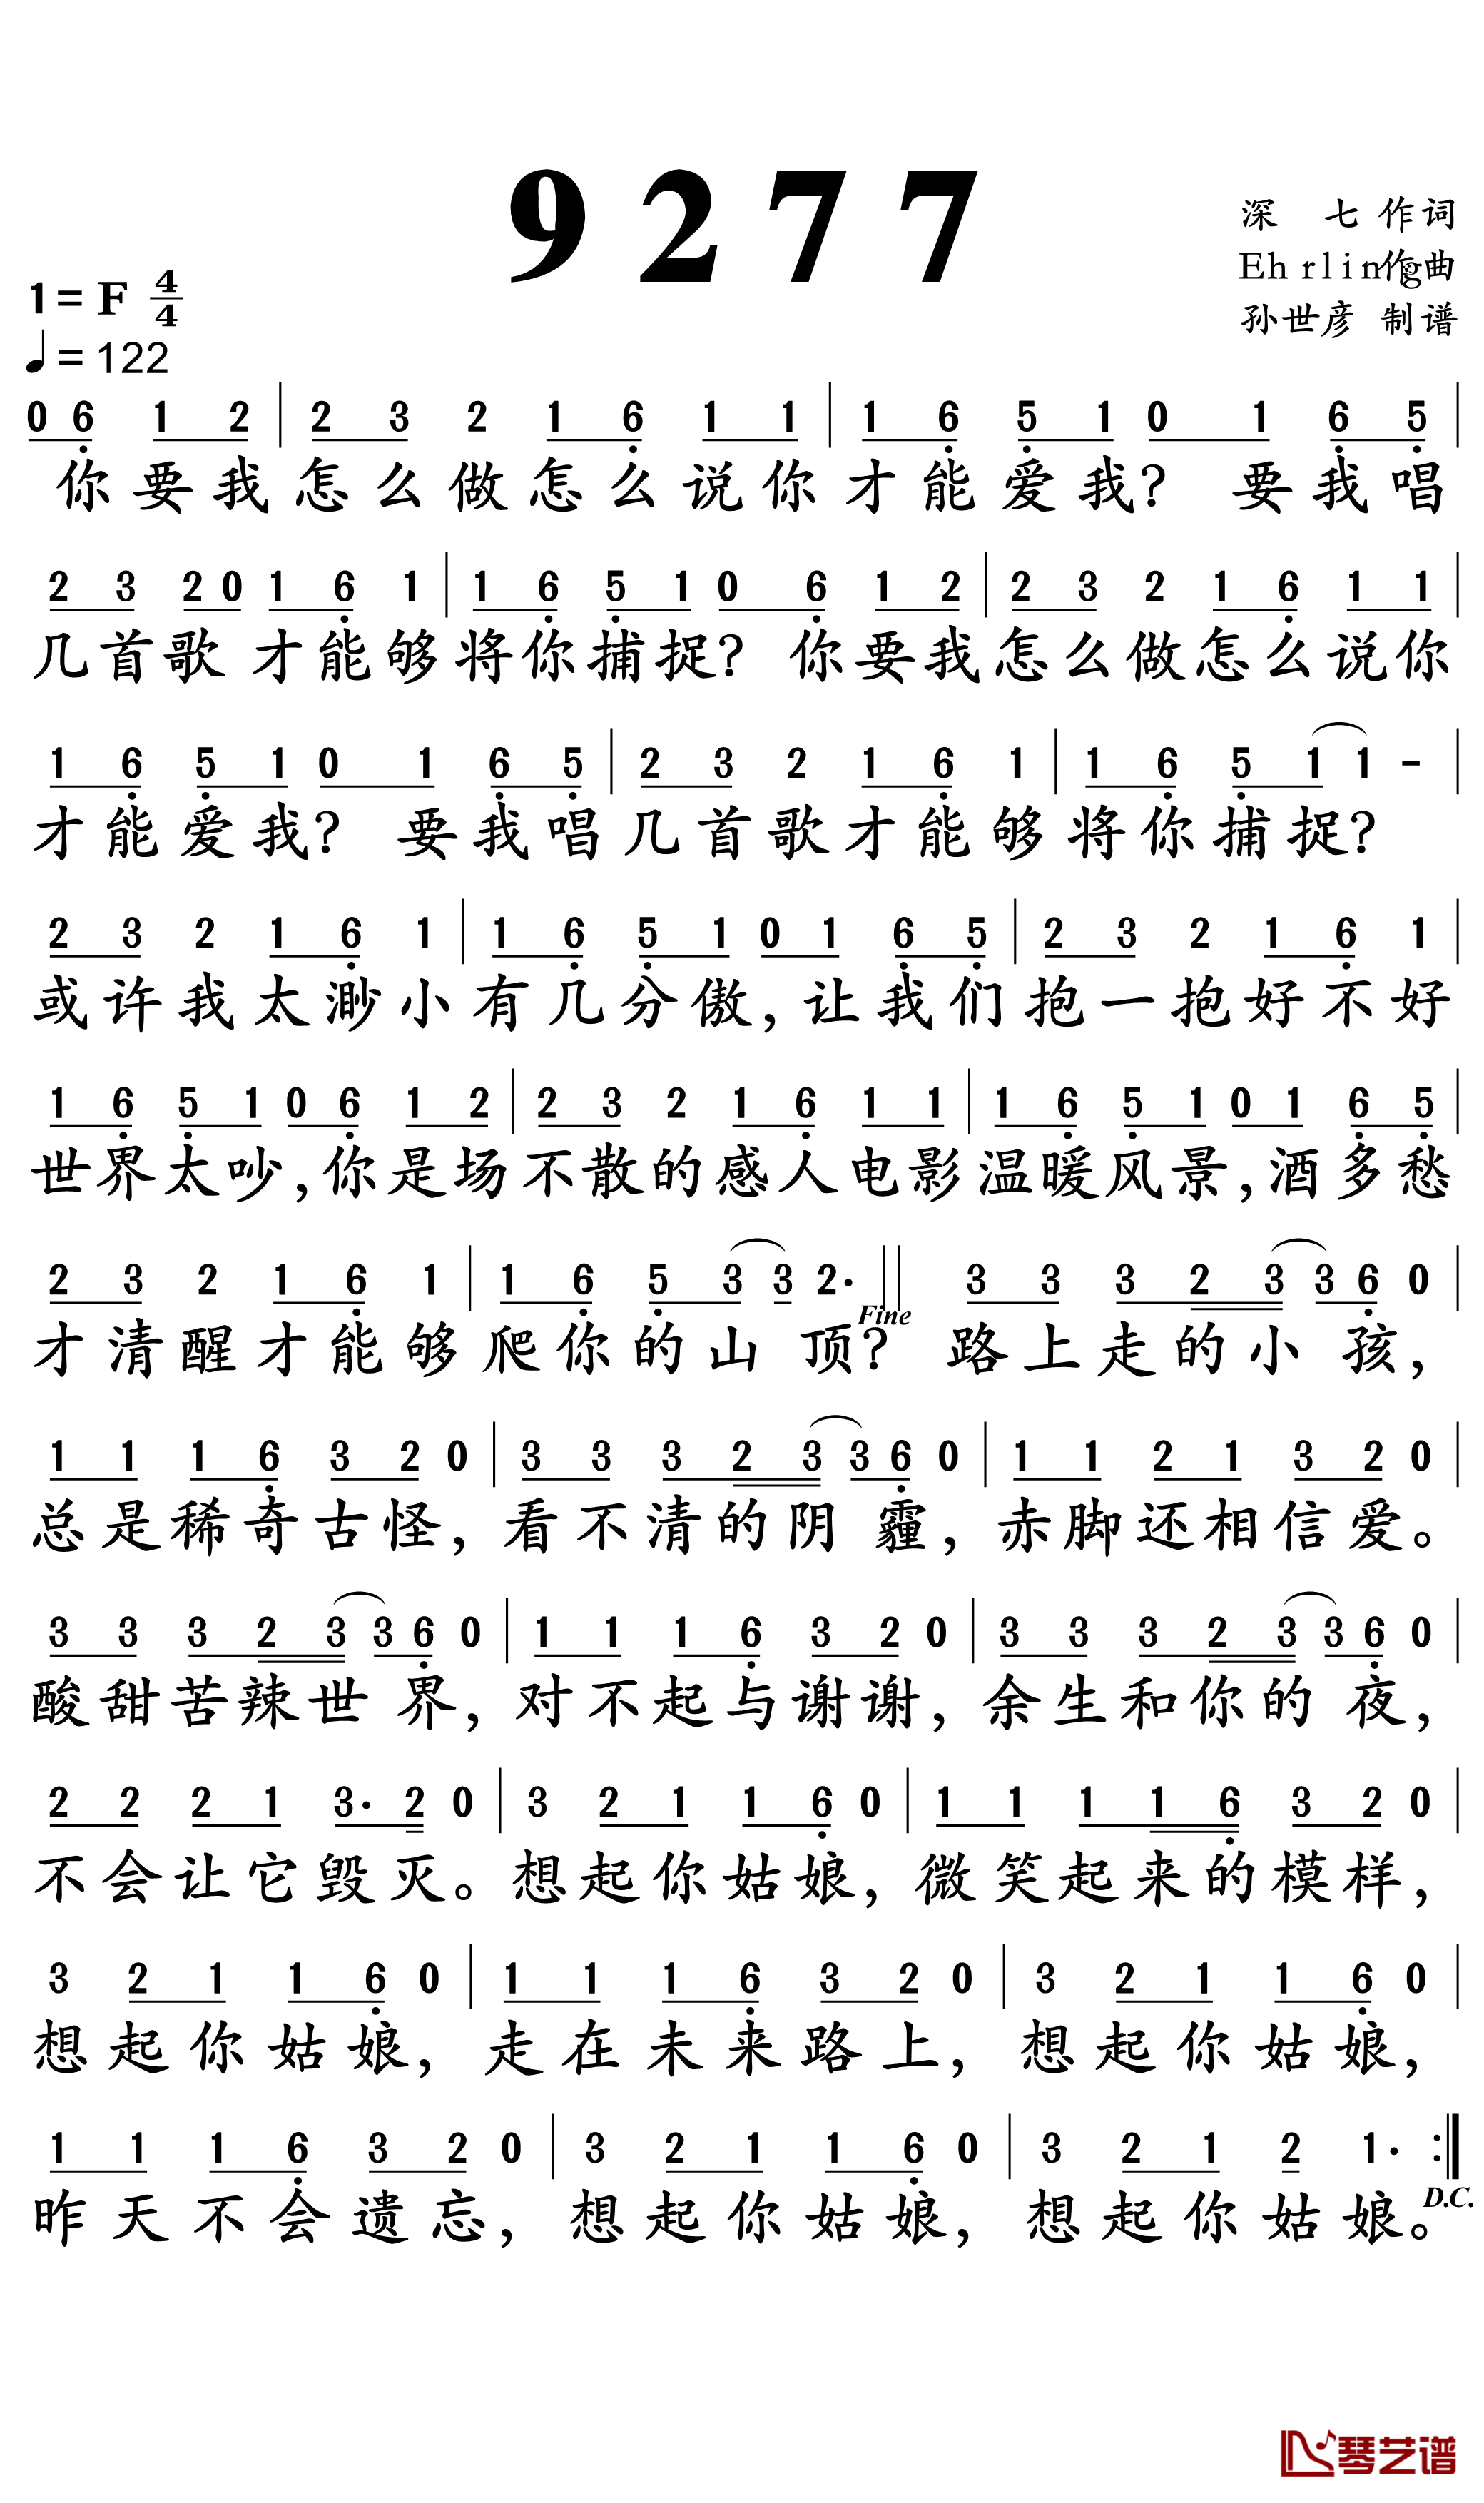 9 2 7 7
深 七 作词
Ehrling作曲
孙世彦 制谱
1=F 4/4
♩=122
0 6 1 2 | 2 3 2 1 6 1 1 | 1 6 5 1 0 1 6 5 |
你要我怎么做怎么说你才能爱我? 要我唱
2 3 2 0 1 6 1 | 1 6 5 1 0 6 1 2 | 2 3 2 1 6 1 1 |
几首歌才能够将你捕捉? 你要我怎么做怎么说你
1 6 5 1 0 1 6 5 | 2 3 2 1 6 1 | 1 6 5 1 1 - |
才能爱我? 要我唱几首歌才能够将你捕捉?
2 3 2 1 6 1 | 1 6 5 1 0 1 6 5 | 2 3 2 1 6 1 |
或许我太渺小有几分傲,让我们抱一抱好不好
1 6 5 1 0 6 1 2 | 2 3 2 1 6 1 1 | 1 6 5 1 0 1 6 5 |
世界太吵,你是场不散的感人电影温暖风景,酒多愁
2 3 2 1 6 1 | 1 6 5 3 3 2· || 3 3 3 2 3 3 6 0 |
Fine
才清醒才能够爬你的山顶? 路上走的小孩,
1 1 1 6 3 2 0 | 3 3 3 2 3 3 6 0 | 1 1 2 1 3 2 0 |
总是稀奇古怪,看不清的阴霾,赤脚还相信爱。
3 3 3 2 3 3 6 0 | 1 1 1 6 3 2 0 | 3 3 3 2 3 3 6 0 |
酸甜苦辣世界,对不起与谢谢,余生和你的夜,
2 2 2 1 3· 2 0 | 3 2 1 1 6 0 | 1 1 1 1 6 3 2 0 |
不会让它毁灭。想起你姑娘,微笑起来的模样,
3 2 1 1 6 0 | 1 1 1 6 3 2 0 | 3 2 1 1 6 0 |
想起你姑娘,走在未来路上,想起你姑娘,
1 1 1 6 3 2 0 | 3 2 1 1 6 0 | 3 2 1 2 1· :|
D.C.
昨天不会遗忘,想起你姑娘,想起你姑娘。
琴艺谱